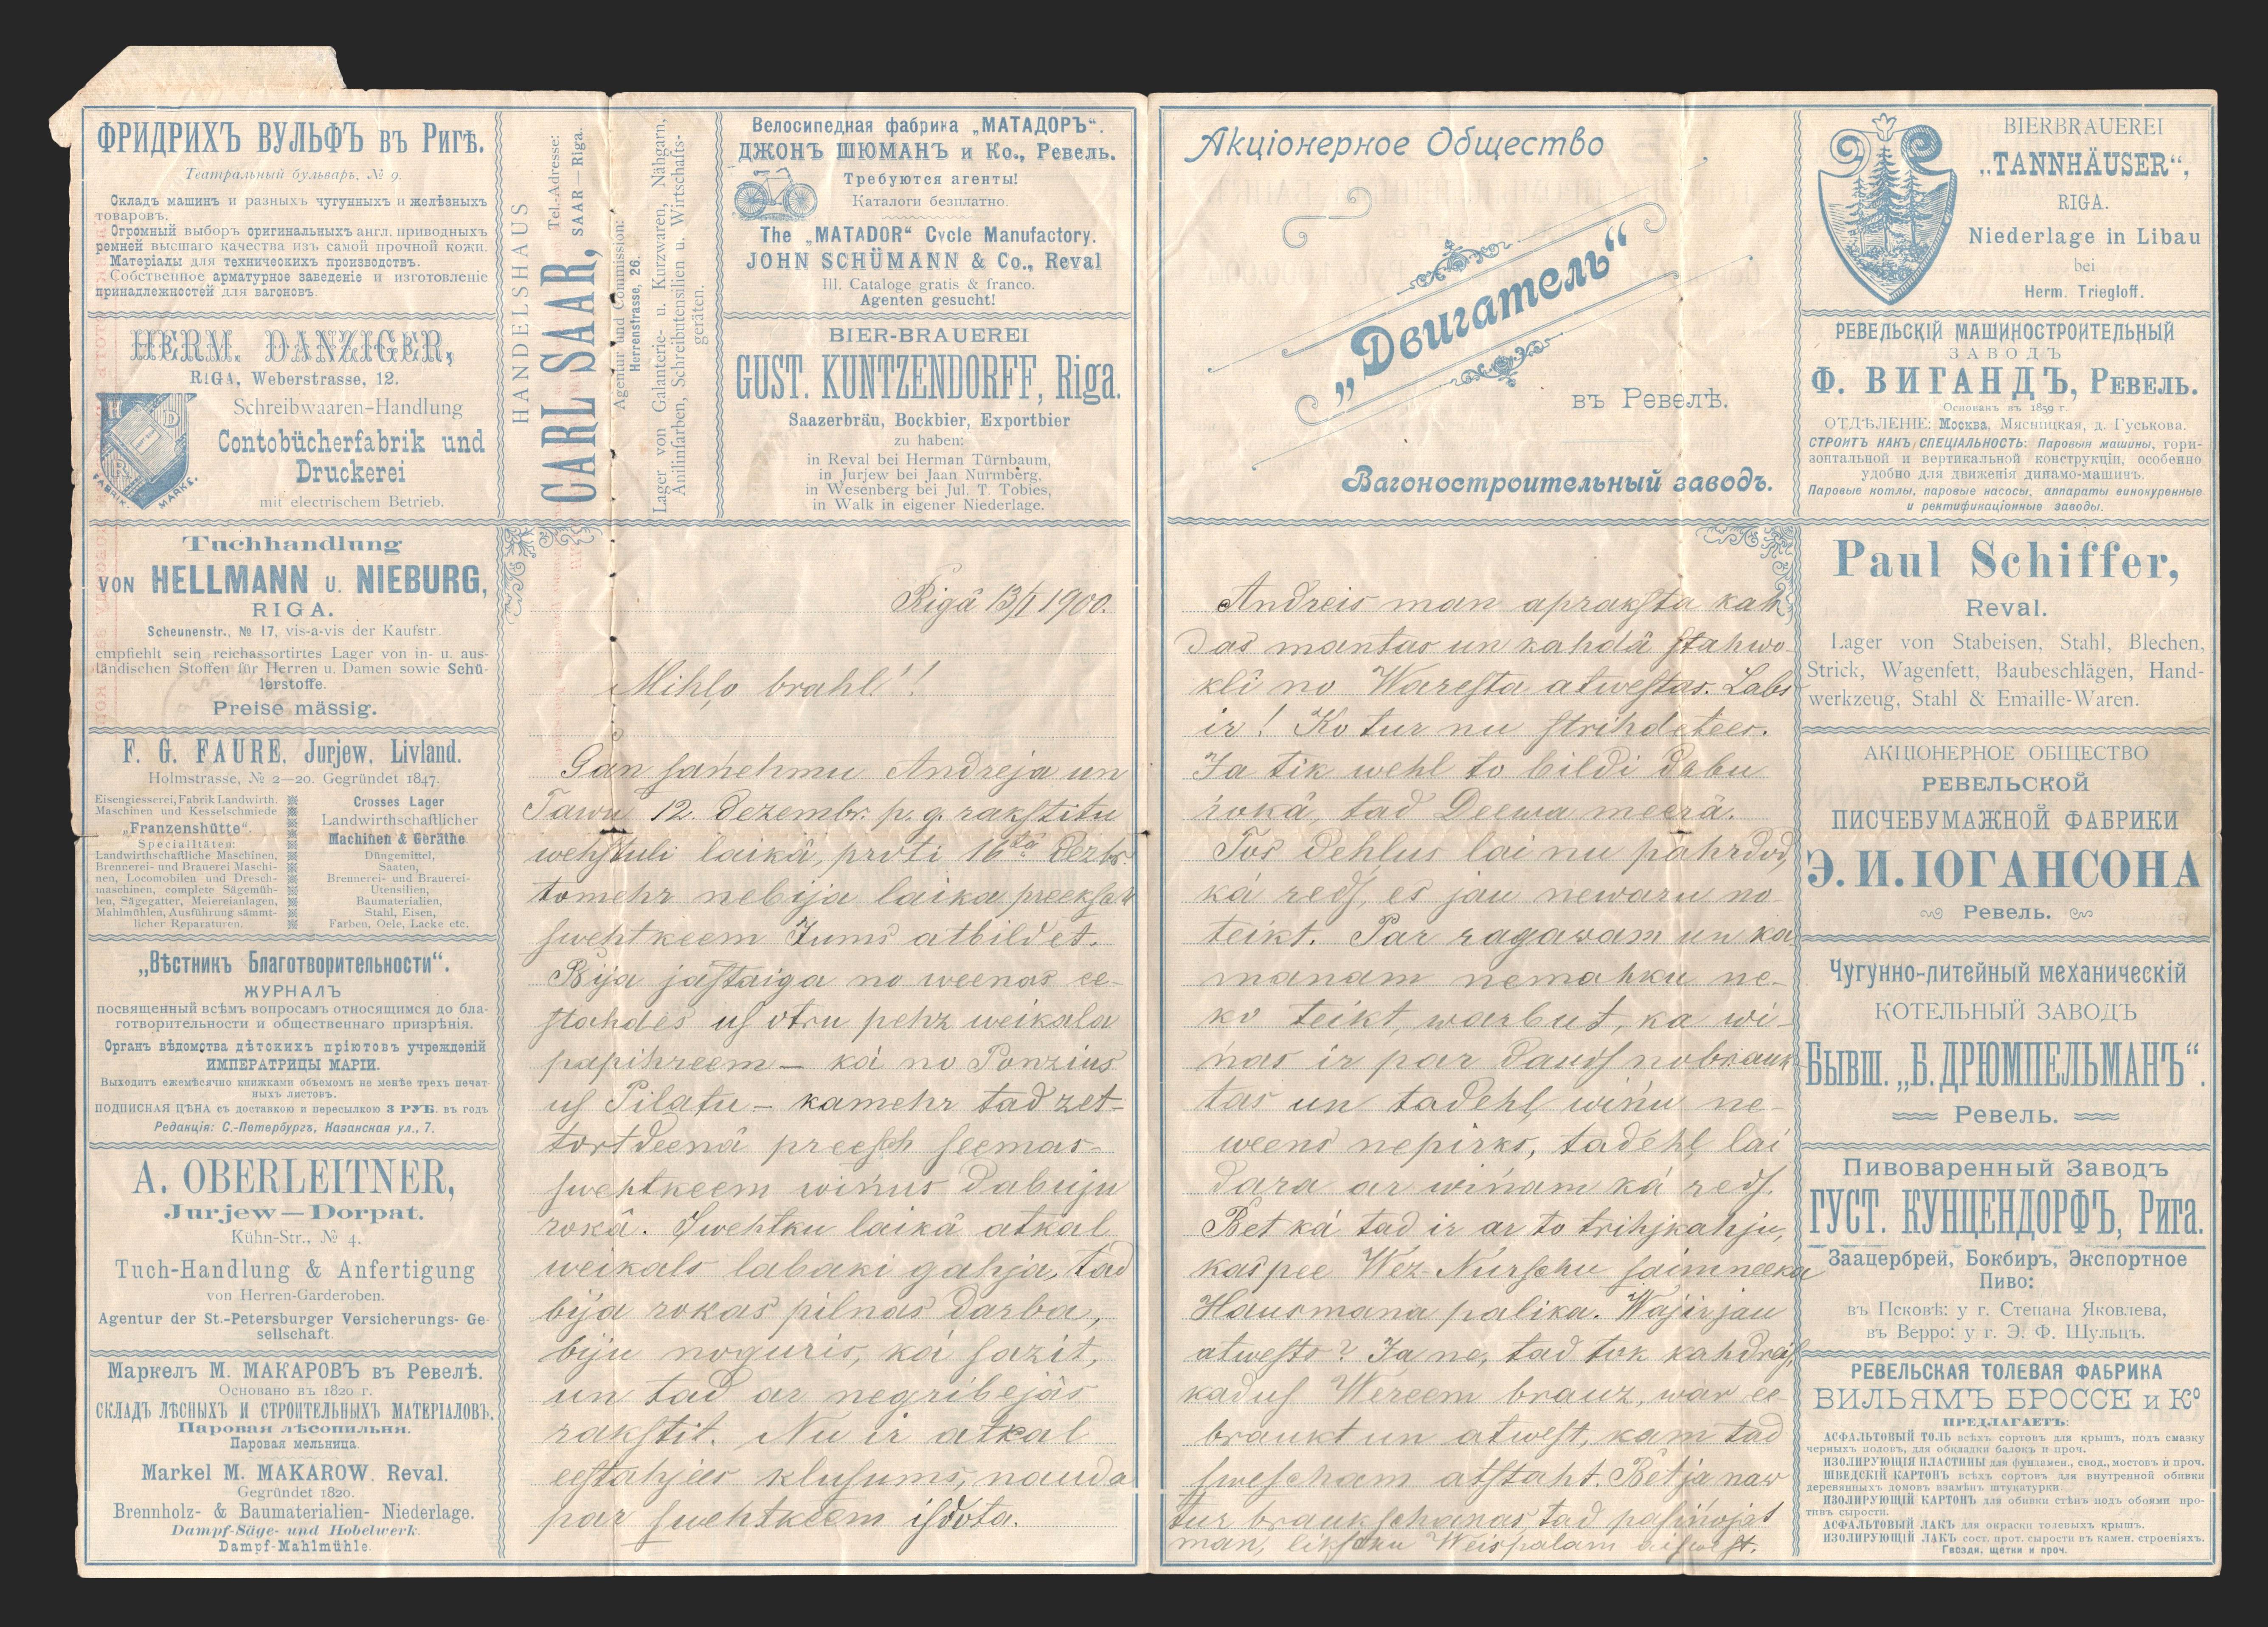 ФРИДРИХЪ ВУЛЬФЪ въ Ригѣ.
Театральный бульваръ, № 9.
Складъ машинъ и разныхъ чугунныхъ и желѣзныхъ
товаровъ.
Огромный выборъ оригинальныхъ англ. приводныхъ
ремней высшаго качества изъ самой прочной кожи.
Матеріалы для техническихъ производствъ.
Собственное арматурное заведеніе и изготовленіе
принадлежностей для вагоновъ.
HERM. DANZIGER,
RIGA, Weberstrasse, 12.
Schreibwaaren-Handlung
Contobücherfabrik und
Druckerei
mit electrischem Betrieb.
H D
R
FABRIK. MARKE.
Tuchhandlung
VON HELLMANN U. NIEBURG,
RIGA.
Scheunenstr., № 17, vis-a-vis der Kaufstr.
empfiehlt sein reichassortirtes Lager von in- u. aus-
ländischen Stoffen für Herren u. Damen sowie Schü-
lerstoffe.
Preise mässig.
F. G. FAURE, Jurjew, Livland.
Holmstrasse, № 2—20. Gegründet 1847.
Eisengiesserei, Fabrik Landwirth.
Maschinen und Kesselschmiede
„Franzenshütte“.
Specialitäten:
Landwirthschaftliche Maschinen,
Brennerei- und Brauerei Maschi-
nen, Locomobilen und Dresch-
maschinen, complete Sägemüh-
len, Sägegatter, Meiereianlagen,
Mahlmühlen, Ausführung sämmt-
licher Reparaturen.
Crosses Lager
Landwirthschaftlicher
Machinen & Geräthe
Düngemittel,
Saaten,
Brennerei- und Brauerei-
Utensilien,
Baumaterialien,
Stahl, Eisen,
Farben, Oele, Lacke etc.
„Вѣстникъ Благотворительности“.
ЖУРНАЛЪ
посвященный всѣмъ вопросамъ относящимся до бла-
готворительности и общественнаго призрѣнія.
Органъ вѣдомства дѣтскихъ пріютовъ учрежденій
ИМПЕРАТРИЦЫ МАРІИ.
Выходитъ ежемѣсячно книжками объемомъ не менѣе трехъ печат-
ныхъ листовъ.
ПОДПИСНАЯ ЦѢНА съ доставкою и пересылкою 3 РУБ. въ годъ
Редакція: С.-Петербургъ, Казанская ул., 7.
A. OBERLEITNER,
Jurjew—Dorpat.
Kühn-Str., № 4.
Tuch-Handlung & Anfertigung
von Herren-Garderoben.
Agentur der St.-Petersburger Versicherungs- Ge-
sellschaft.
Маркелъ М. МАКАРОВЪ въ Ревелѣ.
Основано въ 1820 г.
СКЛАДЪ ЛѢСНЫХЪ И СТРОИТЕЛЬНЫХЪ МАТЕРІАЛОВЪ.
Паровая лѣсопильня.
Паровая мельница.
Markel M. MAKAROW. Reval.
Gegründet 1820.
Brennholz- & Baumaterialien- Niederlage.
Dampf-Säge- und Hobelwerk.
Dampf-Mahlmühle.
HANDELSHAUS
Tel.-Adresse:
CARL SAAR, SAAR—Riga.
Agentur und Commission:
Herrenstrasse, 26.
Lager von Galanterie- u. Kurzwaren, Nähgarn,
Anilinfarben, Schreibutensilien u. Wirtschafts-
geräten.
Велосипедная фабрика „МАТАДОРЪ“.
ДЖОНЪ ШЮМАНЪ и Ко., Ревель.
Требуются агенты!
Каталоги безплатно.
The „MATADOR“ Cycle Manufactory.
JOHN SCHÜMANN & Co., Reval
Ill. Cataloge gratis & franco.
Agenten gesucht!
BIER-BRAUEREI
GUST. KUNTZENDORFF, Riga.
Saazerbräu, Bockbier, Exportbier
zu haben:
in Reval bei Herman Türnbaum,
in Jurjew bei Jaan Nurmberg,
in Wesenberg bei Jul. T. Tobies,
in Walk in eigener Niederlage.
Rigâ 13/I 1900.
Mihļo brahli!
Gan saņehmu Andreja un
Tawu 12. dezembr. p. g. rakstitu
wehstuli laikâ, proti 16tâ dezbr.
tomehr nebija laika preeksch
swehtkeem Jums atbildet.
Bija jastaiga no weenas ee-
stahdes us otru pehz weikala
papihreem — kâ no Ponzius
us Pilatu — kamehr tad zet-
tortdeenâ preesch seemas-
swehtkeem wiņus dabuju
rokâ. Swehtku laikâ atkal
weikals labaki gahja, tad
bija rokas pilnas darba,
biju noguris, kâ sazit,
un tad ar negribejâs
rakstit. Nu ir atkal
eestahjees klusums, nauda
par swehtkeem isdota.
Акціонерное Общество
„Двигатель“
въ Ревелѣ.
Вагоностроительный заводъ.
Andreis man apraksta kah
das mantas un kahdâ stahwo-
klî no Waresta atwestas. Labs
ir! Ko tur nu strihdetees.
Ja tik wehl to bildi dabu
rokâ, tad Deewa meerâ.
Tos dehlus lai nu pahrdod,
kâ reds, es jau newaru no
teikt. Par ragawam un ka
manam nemahku ne-
ko teikt, warbut, ka wi-
ņas ir par daudz nobrauk-
tas un tadehļ wiņu ne-
weens nepirks, tadehļ lai
dara ar wiņam kâ reds.
Bet kâ tad ir ar to trihjkahju,
kas pee Wez-Nurschu saimneeka
Hausmana palika. Waj ir jau
atwests? Ja ne, tad tok kahdreis,
kad us Wereem brauz, war ee-
braukt un atwest, kam tad
swescham atstaht. Bet ja naw
tur braukschanas tad pasiņojat
man, likschu Weispalam aiswest.
BIERBRAUEREI
„TANNHÄUSER“,
RIGA.
Niederlage in Libau
bei
Herm. Triegloff.
РЕВЕЛЬСКІЙ МАШИНОСТРОИТЕЛЬНЫЙ
ЗАВОДЪ
Ф. ВИГАНДЪ, РЕВЕЛЬ.
Основанъ въ 1859 г.
ОТДѢЛЕНІЕ: Москва, Мясницкая, д. Гуськова.
СТРОИТЪ КАКЪ СПЕЦІАЛЬНОСТЬ: Паровыя машины, гори-
зонтальной и вертикальной конструкціи, особенно
удобно для движенія динамо-машинъ.
Паровые котлы, паровые насосы, аппараты винокуренные
и ректификаціонные заводы.
Paul Schiffer,
Reval.
Lager von Stabeisen, Stahl, Blechen,
Strick, Wagenfett, Baubeschlägen, Hand-
werkzeug, Stahl & Emaille-Waren.
АКЦІОНЕРНОЕ ОБЩЕСТВО
РЕВЕЛЬСКОЙ
ПИСЧЕБУМАЖНОЙ ФАБРИКИ
Э. И. ІОГАНСОНА
Ревель.
Чугунно-литейный механическій
КОТЕЛЬНЫЙ ЗАВОДЪ
БЫВШ. „Б. ДРЮМПЕЛЬМАНЪ“.
Ревель.
Пивоваренный Заводъ
ГУСТ. КУНЦЕНДОРФЪ, Рига.
Заацербрей, Бокбиръ, Экспортное
Пиво:
въ Псковѣ: у г. Степана Яковлева,
въ Верро: у г. Э. Ф. Шульцъ.
РЕВЕЛЬСКАЯ ТОЛЕВАЯ ФАБРИКА
ВИЛЬЯМЪ БРОССЕ и Ко
ПРЕДЛАГАЕТЪ:
АСФАЛЬТОВЫЙ ТОЛЬ всѣхъ сортовъ для крышъ, подъ смазку
черныхъ половъ, для обкладки балокъ и проч.
ИЗОЛИРУЮЩІЯ ПЛАСТИНЫ для фундамен., свод., мостовъ и проч.
ШВЕДСКІЙ КАРТОНЪ всѣхъ сортовъ для внутренной обивки
деревянныхъ домовъ взамѣнъ штукатурки.
ИЗОЛИРУЮЩІЙ КАРТОНЪ для обивки стѣнъ подъ обоями про-
тивъ сырости.
АСФАЛЬТОВЫЙ ЛАКЪ для окраски толевыхъ крышъ.
ИЗОЛИРУЮЩІЙ ЛАКЪ сост. прот. сырости въ камен. строеніяхъ.
Гвозди, щетки и проч.